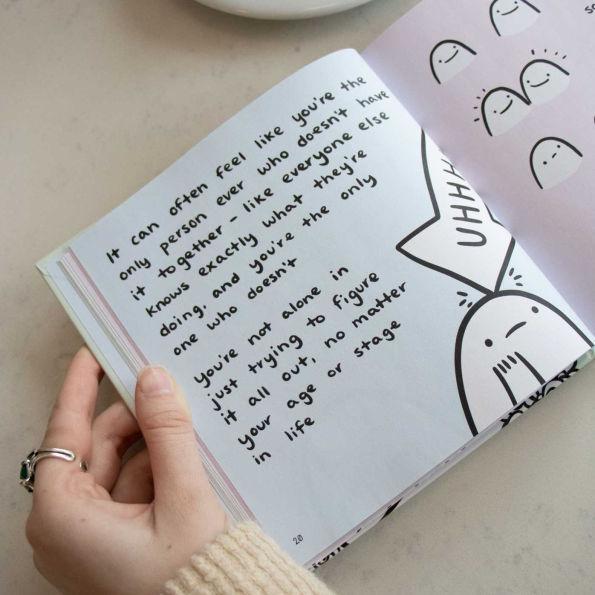 It can often feel like you're the
only person ever who doesn't have
it together - like everyone else
knows exactly what they're
doing, and you're the only
one who doesn't
you're not alone in
just trying to figure
it all out, no matter
your age or stage
in life
UHHH
20